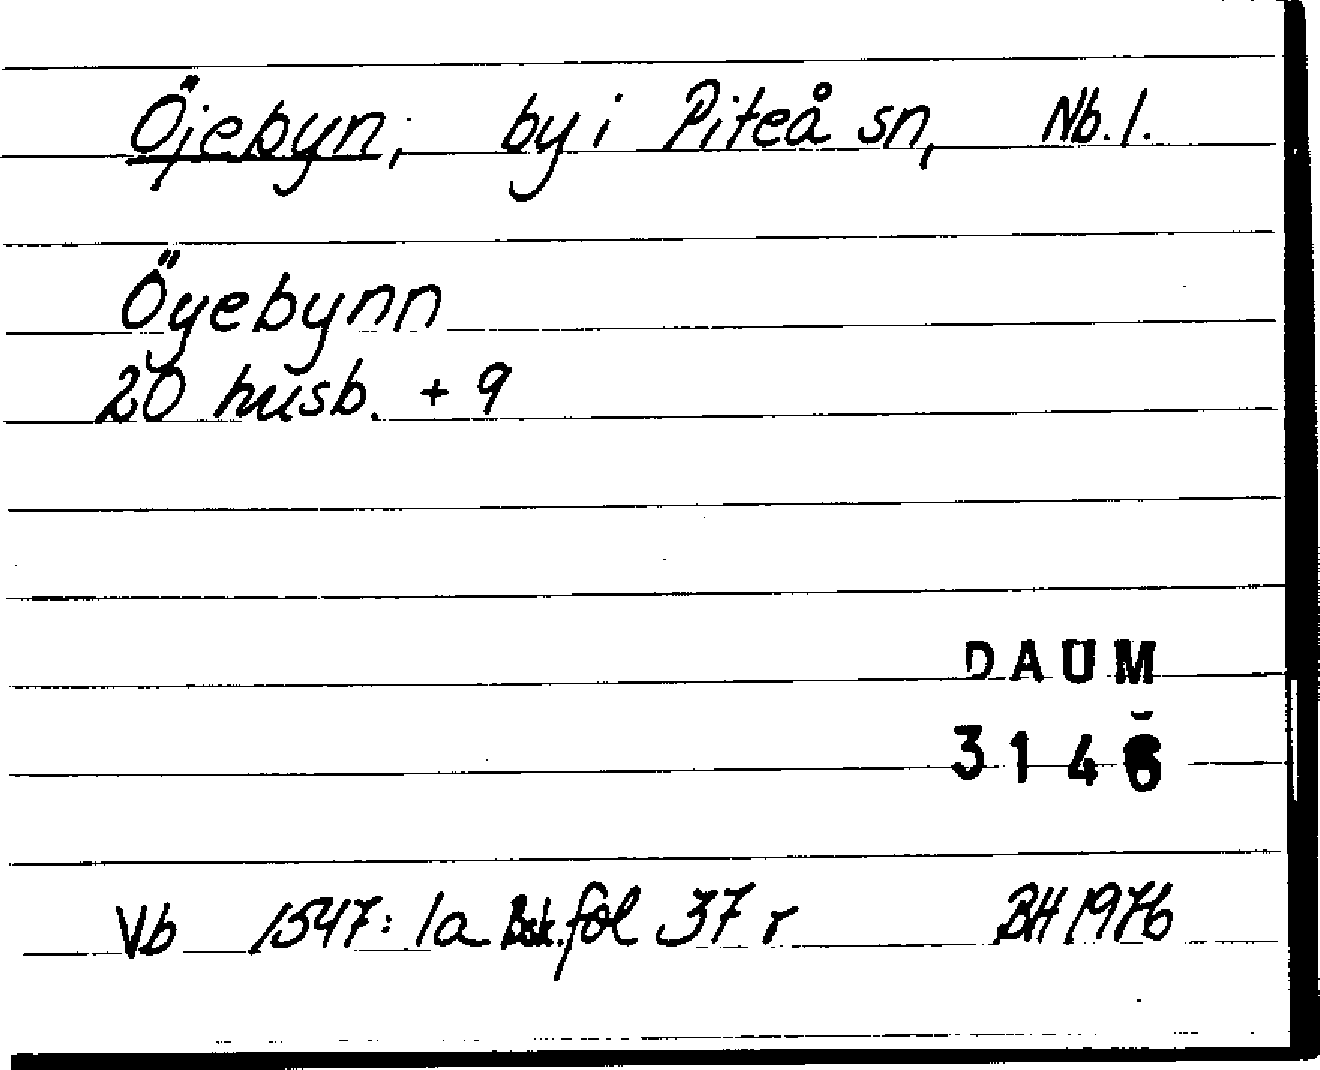 Öjebyn, by i Piteå sn, Nb.l.
Öyebynn
20 husb. + 9
DAUM
3146
Vb 1547: 1a Bsk. fol 37 r BH 1976